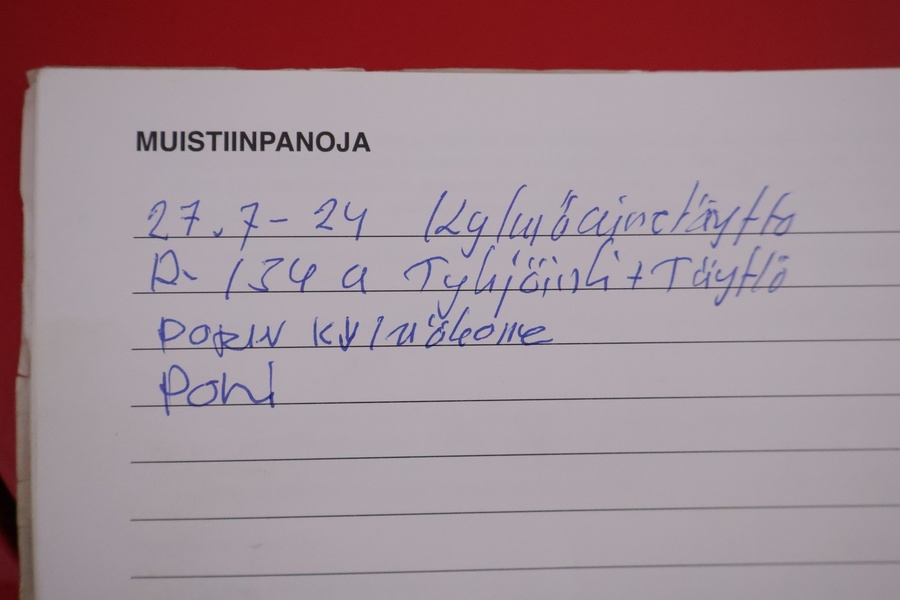 MUISTIINPANOJA
27.7-24 Kylmäainetäyttö
R-134a Tyhjöinti + Täyttö
PORIN KYLMÄKONE
Poni